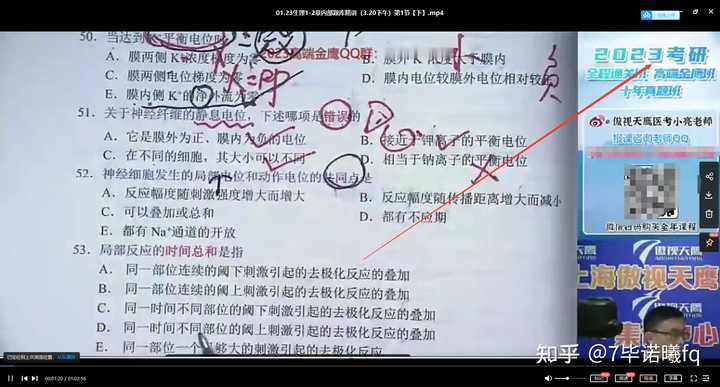 01.23生理1-2章内部题库精讲（3.20下午）第1节【下】.mp4
50. 当达到K⁺平衡电位时
A. 膜两侧K⁺浓度梯度为零
B. 膜外K⁺浓度大于膜内
2023高端金鹰QQ群：
C. 膜两侧电位梯度为零
D. 膜内电位较膜外电位相对较
E. 膜内侧K⁺的净外流为零
51. 关于神经纤维的静息电位，下述哪项是错误的
A. 它是膜外为正、膜内为负的电位
B. 接近于钾离子的平衡电位
C. 在不同的细胞，其大小可以不同
D. 相当于钠离子的平衡电位
52. 神经细胞发生的局部电位和动作电位的共同点是
A. 反应幅度随刺激强度增大而增大
B. 反应幅度随传播距离增大而减小
C. 可以叠加或总和
D. 都有不应期
E. 都有Na⁺通道的开放
53. 局部反应的时间总和是指
A. 同一部位连续的阈下刺激引起的去极化反应的叠加
B. 同一部位连续的阈上刺激引起的去极化反应的叠加
C. 同一时间不同部位的阈下刺激引起的去极化反应的叠加
D. 同一时间不同部位的阈上刺激引起的去极化反应的叠加
E. 同一部位一个足够大的刺激引起的去极化反应
2023考研
全程通关班 高端金鹰班
十年真题班
@傲视天鹰医考小亮老师
报课咨询老师QQ
微信扫码购买全年课程
傲视天鹰
上海傲视天鹰
00:01:20 / 01:02:56
知乎 @7毕诺曦fq